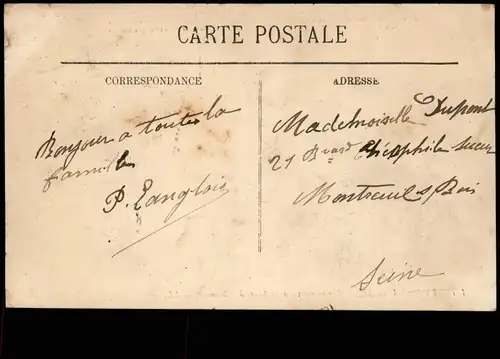 CARTE POSTALE
CORRESPONDANCE
Bonjour a toute la
famille
P. Langlois
ADRESSE
Mademoiselle Dupont
27 Bvard Théophile Sueur
Montreuil s Bois
Seine